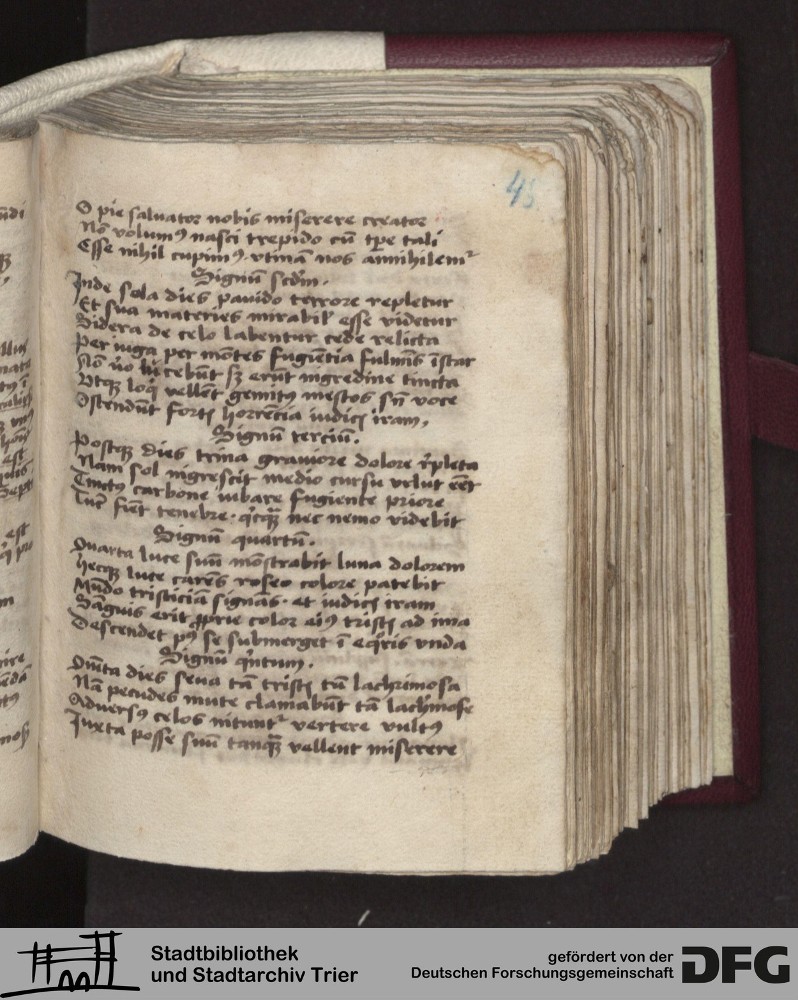 45
O pie saluator nobis miserere creator
Nō volumꝰ nasci trepido cū tꝑe tali
Esse nihil cupimꝰ vtinā nos annihilemᷣ
Signū scdm̄.
Inde sola dies pauido terrore repletur
Et sua materies mirabilʼ esse videtur
Sidera de celo labentur cede relicta
Per iuga per mōtes fugiētia fulmīs īstar
Nō v̓o lucebūt sꝫ erūt nigredine tincta
Vtqꝫ loqͥ vellēt gemitꝰ mestos sn̄ voce
Ostendūt fortꝭ horrēcia iudicꝭ iram,
Signū terciū.
Postqꝫ dies trina grauiore dolore r̓pleta
Nam sol nigrescit medio cursu velut eēt
Tinctꝰ carbone iubare fugiente priore
Tūc fiēt tenebre. nec nemo videbit
Signū quartū.
Quarta luce suū mōstrabit luna dolorem
Hecqꝫ luce carēs roseo colore patebit
Mūdo tristiciā signās. et iudicꝭ iram
Sāguis erit ꝓprie color eiꝰ tristꝭ ad ima
Descendet pꝰ se submerget ī eqͦris vnda
Signū qͥntum.
Quīta dies seua tā tristꝭ tū lachrimosa
Nā pecudes mute clamabūt tā lachͥmose
Aduersꝰ celos nituntᷣ vertere vultꝰ
Iuxta posse suū tanqꝫ vellent miserere
Stadtbibliothek
und Stadtarchiv Trier
gefördert von der
Deutschen Forschungsgemeinschaft
DFG